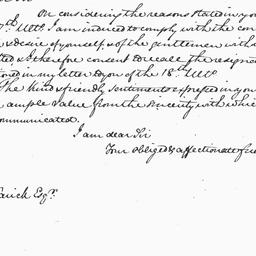 On considering the reasons stated in you
7th Ulto I am induced to comply with the con
& desire of yourself & of the gentlemen with
ted & therefore consent to recall the resigna
ioned in my letter to you of the 18th Ulto
The kind & friendly sentiments expressed in you
n ample value from the sincerity with which
ommunicated.
I am dear Sir
Your obliged & affectionate frie
arick Esqr